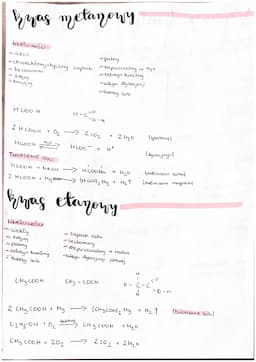 kwas metanowy
właściwości
- ciecz
- charakterystyczny zapach
- bezbarwny
- żrący
- toksyczny
- palny
- rozpuszczalny w H₂O
- odczyn kwaśny
- ulega dysocjacji
- tworzy sole
HCOOH
H - C O O-H
2 HCOOH + O₂ → 2CO₂ + 2H₂O (spalanie)
HCOOH H₂O → HCOO⁻ + H⁺ (dysocjacja)
Tworzenie soli
HCOOH + NaOH → HCOONa + H₂O (metanian sodu)
2 HCOOH + Mg → (HCOO)₂Mg + H₂↑ (metanian magnezu)
kwas etanowy
właściwości
- ciekły
- żrący
- palny
- odczyn kwaśny
- tworzy sole
- zapach octu
- bezbarwny
- rozpuszczalny w wodzie
- ulega dysocjacji
CH₃COOH CH₃ - COOH H - C - C O O-H
H
H
2 CH₃COOH + Mg → (CH₃COO)₂Mg + H₂↑ (tworzenie soli)
C₂H₅OH + O₂ → CH₃COOH + H₂O
CH₃COOH + 2O₂ → 2CO₂ + 2H₂O